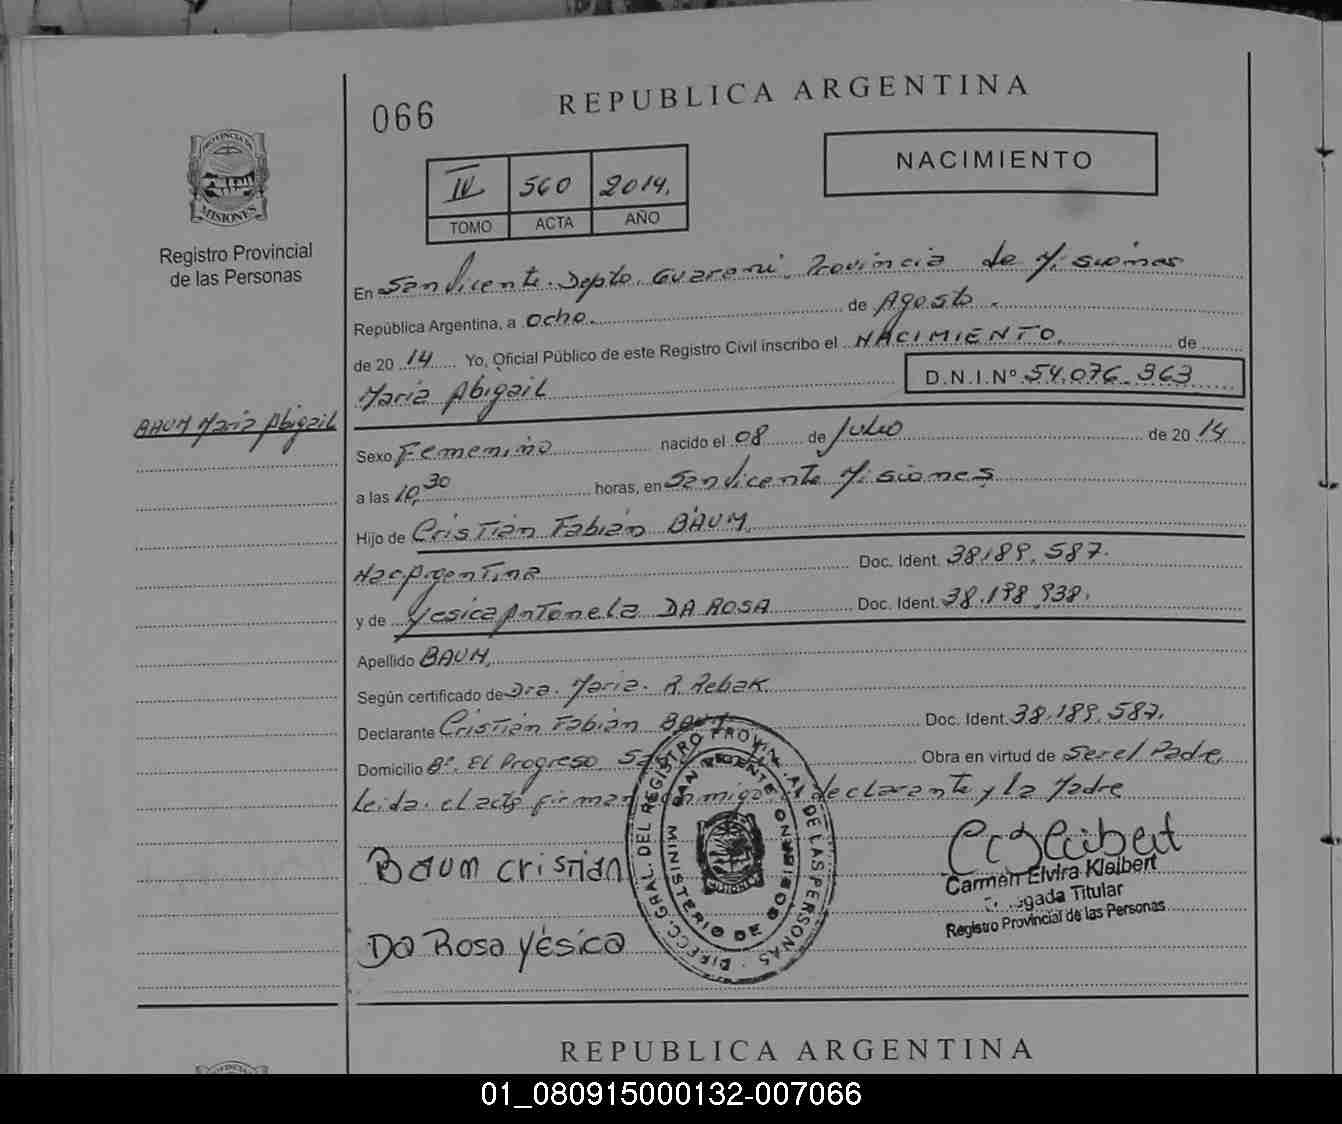 066
REPUBLICA ARGENTINA
PROVINCIA DE
MISIONES
Registro Provincial
de las Personas
IV 560 2014.
TOMO ACTA AÑO
NACIMIENTO
En San Vicente. Depto. Guaraní. Provincia de Misiones
República Argentina, a ocho. de Agosto.
de 2014 Yo, Oficial Público de este Registro Civil inscribo el NACIMIENTO. de
María Abigail D.N.I.Nº 54.076.363
BAUM María Abigail
Sexo Femenino nacido el 08 de Julio de 2014
a las 10,30 horas, en San Vicente Misiones
Hijo de Cristian Fabián BAUM,
Nac Argentina Doc. Ident. 38.189.587.
y de Yesica Antonela DA ROSA Doc. Ident. 38.198.938.
Apellido BAUM,
Según certificado de Dra. María. R. Rebak
Declarante Cristian Fabián BAUM Doc. Ident. 38.189.587.
Domicilio Bº. El Progreso, Obra en virtud de Ser el Padre,
Leída. el acta firman conmigo declarante y la Madre
BAUM Cristian
Da Rosa Yésica
DIRECC. GRAL. DEL REGISTRO PROVINCIAL DE LAS PERSONAS
MINISTERIO DE GOBIERNO
SAN VICENTE
Carmen Elvira Kleibert
Delegada Titular
Registro Provincial de las Personas
REPUBLICA ARGENTINA
01_080915000132-007066